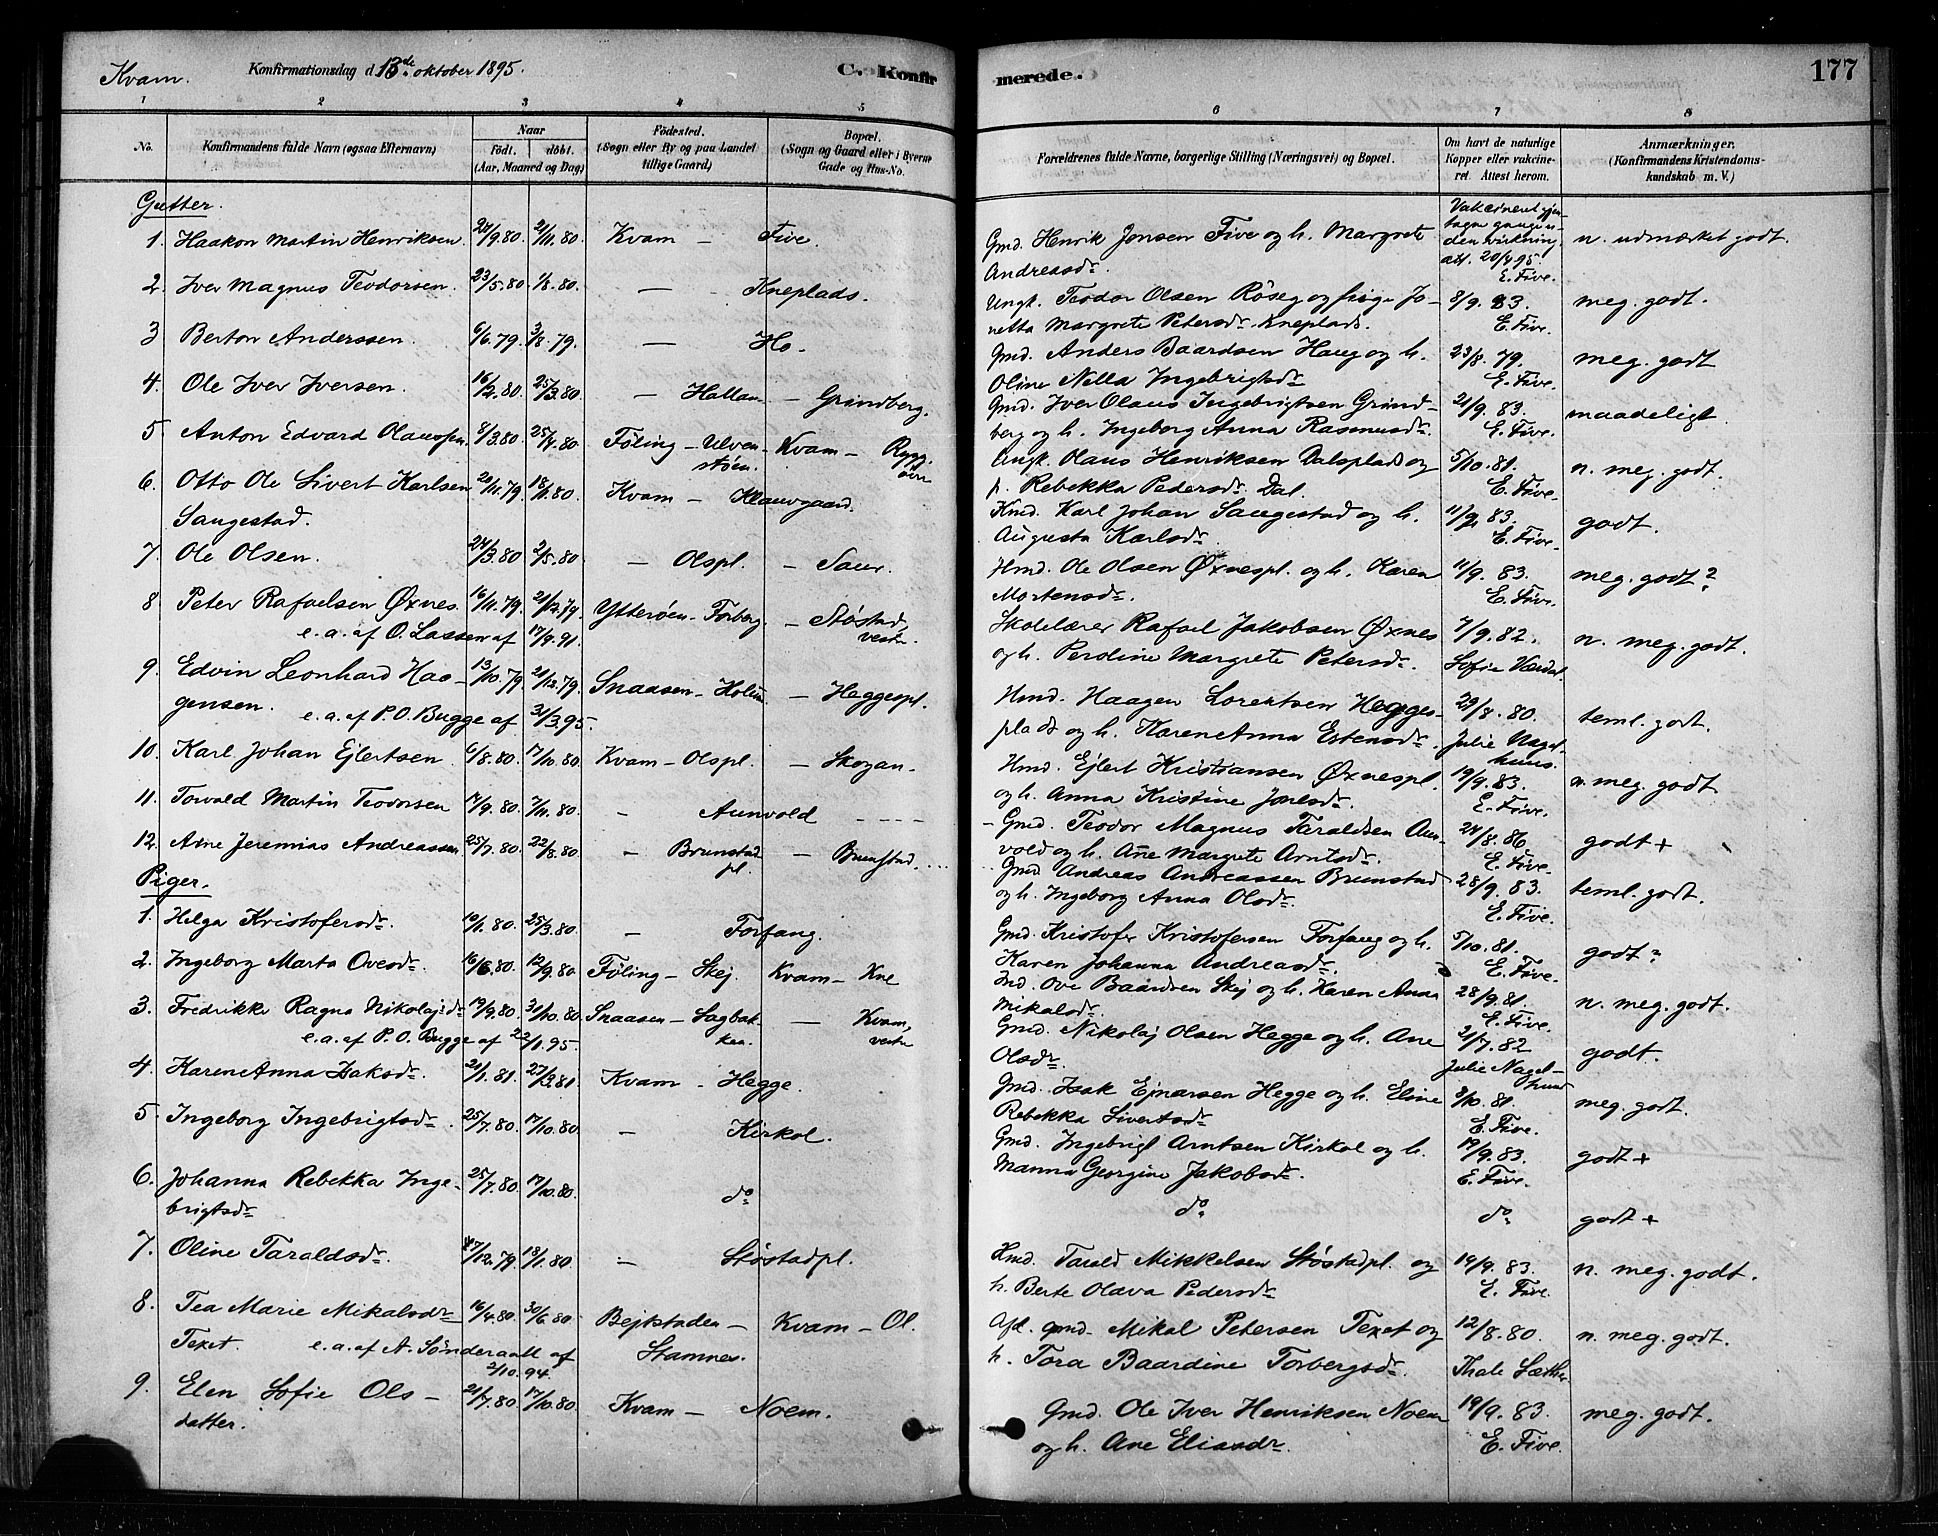 Kvam. Konfirmationsdag d. 13de oktober 1895. C. Konfir
merede. 177
1 2 3 4 5 6 7 8
No. Konfirmandens fulde Navn (ogsaa Efternavn) Naar Födt. döbt. (Aar, Maaned og Dag) Födested. (Sogn eller By og paa Landet tillige Gaard) Bopæl. (Sogn og Gaard eller i Byerne Gade og Hus-No.
Forældrenes fulde Navne, borgerlige Stilling (Næringsvei) og Bopæl. Om havt de naturlige Kopper eller vakcineret. Attest herom. Anmærkninger. (Konfirmandens Kristendomskundskab m. V.)
Gutter.
1. Haakon Martin Henriksen. 24/9.80 21/11.80 Kvam – Five.
2. Iver Magnus Teodorsen. 23/5.80 1/8.80 — Kneplads.
3 Berton Anderssen. 6/6.79. 3/8.79. — Ho.
4. Ole Iver Iversen. 16/2.80 25/3.80 – Hallan – Grindberg.
5. Anton Edvard Olaussen. 8/3.80 25/4.80 Føling – Ulvenstøen. Kvam – Rygg
6. Otto Ole Sivert Karlsen 20/11.79 18/1.80 Kvam – Klauvgaard.
Saugestad.
7. Ole Olsen. 24/3.80 2/5.80 – Olspl. – Saur.
8 Peter Rafaelsen Øxnes. 16/11.79. 21/12.79 Ytterøen – Forberg. – Støstad, vestr.
e. a. af O. Lassen af 17/9.91.
9. Edvin Leonhard Haagensen. 13/10.79. 21/12.79. Snaasen – Holum – Heggespl.
e. a. af P. O. Bugge af 3/3.95.
10. Karl Johan Ejlertsen. 6/8.80 17/10.80 Kvam – Olspl. – Skogan.
11. Torvald Martin Teodorsen 17/9.80 7/11.80 – Aunvold
12. Arne Jeremias Andreassen 25/7.80 22/8.80 – Brunstad pl. – Brunstad.
Piger.
1. Helga Kristofersdr. 19/1.80 25/3.80 – Forfang.
2. Ingeborg Marta Ovesdr. 16/6.80 12/9.80 Føling – Skej Kvam – Kne
3. Fredrikke Ragna Nikolajsdr 19/9.80 31/10.80 Snaasen – Sagbakken. – Kvam, vestre
e. a. af P. O. Bugge af 22/1.95.
4. Karen Anna Isaksdr. 21/1.81 27/3.81 Kvam – Hegge.
5. Ingeborg Ingebrigtsdr. 25/7.80 17/10.80 – Kirkol.
6. Johanna Rebekka Ingebrigtsdr 25/7.80 17/10.80. do
7. Oline Taraldsdr. 27/12.79 18/1.80 – Støstadpl.
8. Tea Marie Mikalsdr 16/4.80 30/6.80 Bejtstaden – Stamnes. Kvam – Ol.
Texet. e. a. af A. Sønderaall af 2/10.94.
9. Elen Sofie Olsdatter. 21/7.80 17/10.80 Kvam – Noem.
Gmd. Henrik Jonsen Five og h. Margrete Andreasdr. Vakcineret gjentagne gange uden virkning, att. 20/4 95. E. Five. n. udmærket godt.
Ungk. Teodor Olsen Röseg og pige Jonetta Margrete Petersdr. Kneplads. 8/9. 83. E. Five. meg. godt.
Gmd. Anders Baardsen Haug og h. Oline Nella Ingebrigtsdr 23/8. 79. E. Five. meg. godt
Gmd. Iver Olaus Ingebrigtsen Grindberg og h. Ingeborg Anna Rasmusdr. 21/9. 83. E. Five. maadeligt.
Ungk. Olaus Henriksen Dalsplads og p. Rebekka Pedersdr. Dal. 5/10. 81. E. Five. n. meg. godt.
Kmd. Karl Johan Saugestad og h. Augusta Karlsdr 11/9. 83. E. Five. godt.
Hmd. Ole Olsen Øxnespl. og h. Karen Mortensdr. 11/9. 83. E. Five. meg. godt?
Skolelærer Rafael Jakobsen Øxnes og h. Perdine Margrete Petersdr. 7/9. 82. Sofie Værdal n. meg. godt.
Hmd. Haagen Lorentsen Heggesplads og h. Karen Anna Estensdr. 29/8. 80. Julie Nagelhuus. teml. godt.
Hmd. Ejlert Kristiansen Øxnespl. og h. Anna Kristine Jonsdr. 19/9. 83. E. Five. n. meg. godt
Gmd. Teodor Magnus Taraldsen Aunvold og h. Ane Margrete Arntsdr. 24/8. 86 E. Five. godt +
Gmd Andreas Andreassen Brunstad og h. Ingeborg Anna Olsdr. 28/9. 83. E. Five. teml. godt.
Gmd. Kristofer Kristofersen Forfang og h. Karen Johanna Andreasdr. 5/10. 81. E. Five. godt?
Ind. Ove Baardsen Skej og h. Karen Anna Mikalsdr. 28/9. 81. E. Five. n. meg. godt.
Gmd. Nikolaj Olsen Hegge og h. Ane Olsdr 21/7. 82 Julie Nagelhuus godt.
Gmd. Isak Ejnarsen Hegge og h. Eline Rebekka Sivertsdr 3/10. 81. E. Five. meg. godt.
Gmd. Ingebrigt Arntsen Kirkol og h. Manna Georgine Jakobsdr. 19/9. 83. E. Five. godt +
do do godt +
Hmd. Tarald Mikkelsen Støstadpl. og h. Berte Olava Pedersdr 19/9. 83. E. Five. n. meg. godt.
Afd. gmd. Mikal Petersen Texet og h. Tora Baardine Torbergsdr. 12/8. 80. Thale Sæther. n. meg. godt.
Gmd. Ole Iver Henriksen Noem og h. Ane Eliasdr. 19/9. 83. E. Five. meg. godt.